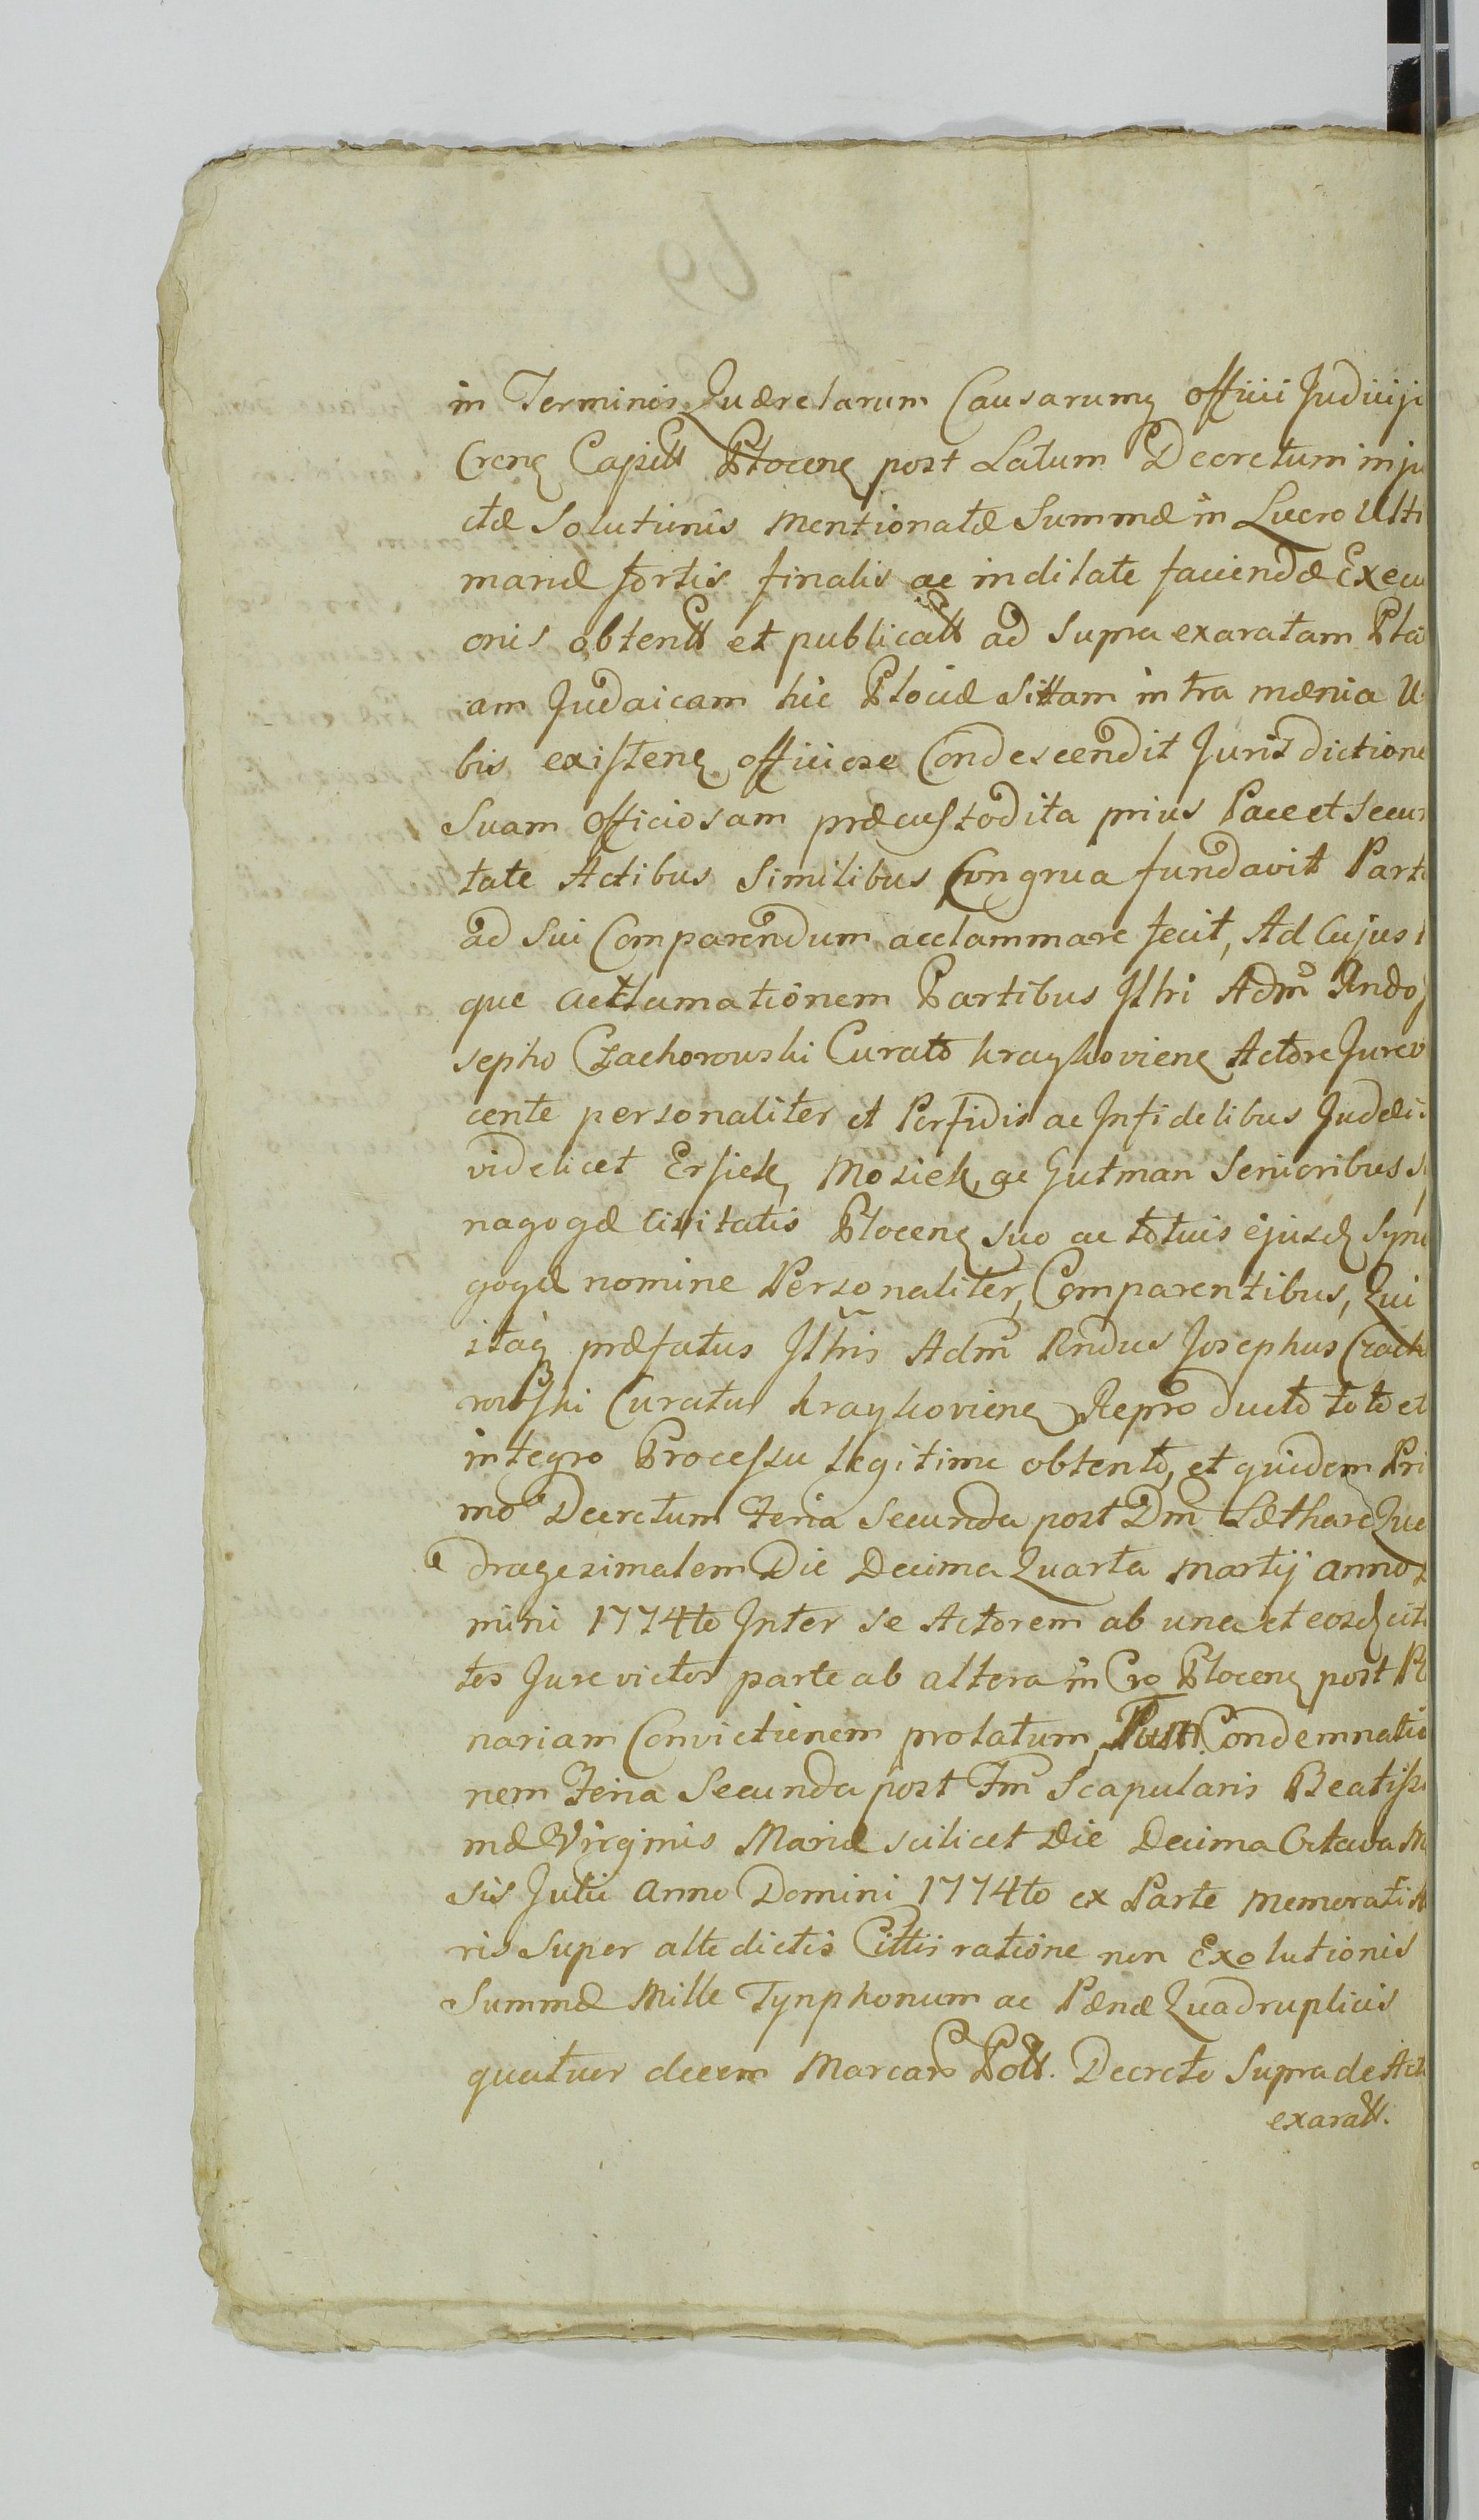 in Terminis Quærelarum Causarumq officii Judicij
Crenq Capitll Plocenq post Latum Decretum inju
ctæ Solutionis mentionatæ Summæ in Lucro Ulti
mariæ sortis finalis ac indilate faciendæ Execu
onis obtentt et publicatt ad supra exaratam Pla
am Judaicam hic Plociæ sittam intra mænia U
bis existenq officiose Condescendit Jurisdictione
Suam officiosam præcustodita prius Pace et Secur
tate Actibus Similibus Congrua fundavit Part
ad sui Comparendum acclammare fecit, Ad Cujus
que acclamationem Partibus Jllri Adm Rndo J
sepho Czachorowski Curato kraykovienq Actore Jurev
cente personaliter et Perfidis ac Infidelibus Judæi
videlicet Ersiek, Mosiek, ac Gutman Senioribus S
nagogæ Civitatis Plocenq suo ac totius ejusd Syn
gogæ nomine Personaliter, Comparentibus, Qui
itaq præfatus Jllris Adm Rndus Josephus Czach
rowski Curatus kraykovienq Reproducto toto et
integro Processu legitime obtento, et quidem Pri
mo Decretum Feria Secunda post Dm Læthare Qua
dragesimalem Die Decima Quarta Martij anno D
mini 1774to Inter se Actorem ab una et eosd cit
tos Jure victos parte ab altera in Cro Plocenq post Pl
nariam Convictionem prolatum, Condemnatio
nem Feria Secunda post Fm Scapularis Beatissi
mæ Virginis Mariæ scilicet Die Decima Octava M
sis Julii Anno Domini 1774to ex Parte memorati A
ris super alte dictis Cittis ratione non Exolutionis
Summæ Mille Tynphonum ac Pænæ Quadruplicis
quatuor decem Marcar Poll. Decreto Supra de Act
exaratt.